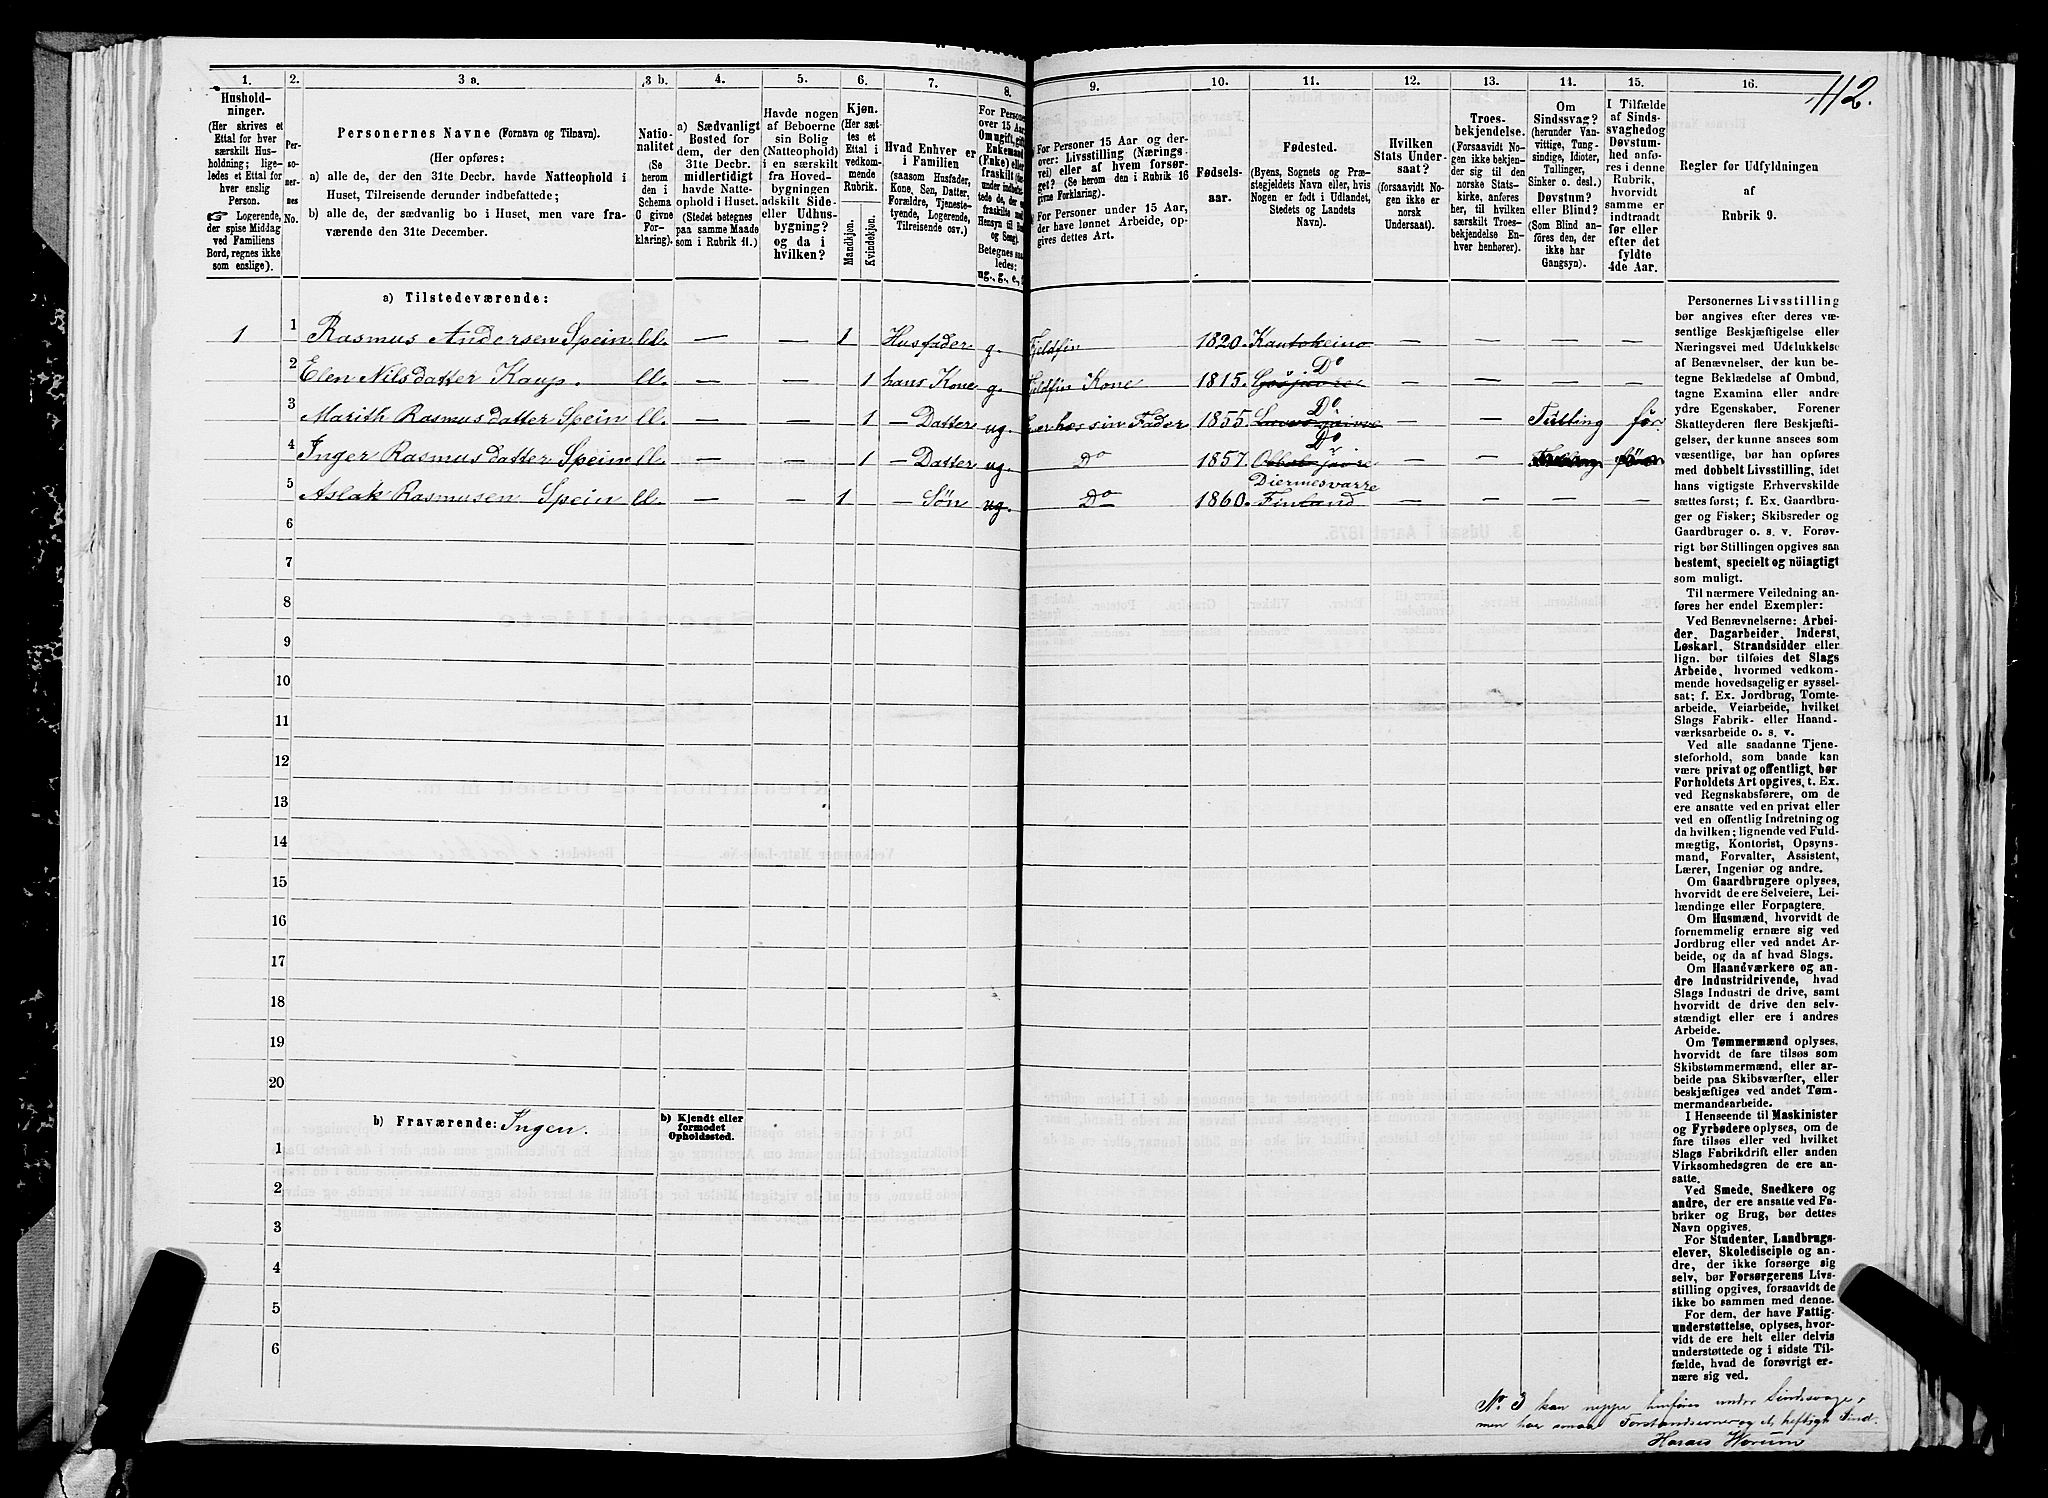 112.
1.
Husholdninger.
(Her skrives et
Ettal for hver
særskilt Husholdning; ligeledes et Ettal for
hver enslig
Person.
☞ Logerende,
der spise Middag
ved Familiens
Bord, regnes ikke
som enslige).
2.
Personernes
No.
3 a.
Personernes Navne (Fornavn og Tilnavn).
(Her opføres:
a) alle de, der den 31te Decbr. havde Natteophold i
Huset, Tilreisende derunder indbefattede;
b) alle de, der sædvanlig bo i Huset, men vare fraværende den 31te December.
3 b.
Nationalitet
(Se
herom
den i
Schema
C givne
Forklaring).
4.
a) Sædvanligt
Bosted for
dem, der den
31te Decbr.
midlertidigt
havde Natteophold i Huset.
(Stedet betegnes
paa samme Maade
som i Rubrik 11.)
5.
Havde nogen
af Beboerne
sin Bolig
(Natteophold)
i en særskilt
fra Hovedbygningen
adskilt Side-
eller Udhusbygning?
og da i
hvilken?
6.
Kjøn.
(Her sættes et
Ettal i
vedkommende
Rubrik.
Mandkjøn.
Kvindekjøn.
7.
Hvad Enhver er
i Familien
(saasom Husfader,
Kone, Søn, Datter,
Forældre, Tjenestetyende, Logerende,
Tilreisende osv.)
8.
9.
For Personer 15 Aar og derover: Livsstilling (Næringsvei) eller af hvem forsørget? (Se herom den i Rubrik 16
givne Forklaring).
For Personer under 15 Aar,
der have lønnet Arbeide, opgives dettes Art.
10.
Fødselsaar.
11.
Fødested.
(Byens, Sognets og Præstegjeldets Navn eller, hvis
Nogen er født i Udlandet,
Stedets og Landets
Navn).
12.
Hvilken
Stats Undersaat?
(forsaavidt Nogen ikke er
norsk
Undersaat).
13.
Troesbekjendelse.
(Forsaavidt Nogen ikke bekjender sig til den
norske Statskirke, anføres
her, til hvilken
særskilt Troesbekjendelse Enhver henhører).
14.
Om
Sindssvag?
(herunder Vanvittige, Tungsindige, Idioter,
Tullinger,
Sinker o. desl.)
Døvstum?
eller Blind?
(Som Blind anføres den, der
ikke har
Gangsyn).
15.
I Tilfælde
af Sindssvaghed og
Døvstumhed anføres i denne
Rubrik,
hvorvidt
samme er
indtraadt
før eller
efter det
fyldte
4de Aar.
16.
Regler for Udfyldningen
af
Rubrik 9.
a) Tilstedeværende:
1 1 Rasmus Andersen Spein ll. — — 1 Husfader g. Fjeldfin 1820. Kautokeino — — — —
2 Elen Nilsdatter Kaup. ll. — — 1 hans Kone g. Fjeldfin Kone 1815. Do — — — —
3 Marith Rasmusdatter Spein ll. — — 1 — Datter ug. Er hos sin Fader 1855. Do — — Tulling før
4 Inger Rasmusdatter Spein ll. — — 1 — Datter ug. Do 1857. Do — —
5 Aslak Rasmusen Spein ll. — — 1 — Søn ug. Do 1860. Diermesvarre Finland — — — —
6
7
8
9
10
11
12
13
14
15
16
17
18
19
20
b) Fraværende: Ingen.
b) Kjendt eller
formodet
Opholdssted.
1
2
3
4
5
6
Personernes Livsstilling
bør angives efter deres væsentlige Beskjæftigelse eller
Næringsvei med Udelukkelse
af Benævnelser, der kun betegne Beklædelse af Ombud,
tagne Examina eller andre
ydre Egenskaber. Forener
Skatteyderen flere Beskjæftigelser, der kunne ansees som
væsentlige, bør han opføres
med dobbelt Livsstilling, idet
hans vigtigste Erhvervskilde
sættes først; f. Ex. Gaardbruger og Fisker; Skibsreder og
Gaardbruger o. s. v. Forøvrigt bør Stillingen opgives saa
bestemt, specielt og nöiagtigt
som muligt.
Til nærmere Veiledning anføres her endel Exempler:
Ved Benævnelserne: Arbeider, Dagarbeider, Inderst,
Løskarl, Strandsidder eller
lign. bør tilføies det Slags
Arbeide, hvormed vedkommende hovedsagelig er sysselsat; f. Ex. Jordbrug, Tomtearbeide, Veiarbeide, hvilket
Slags Fabrik- eller Haandværksarbeide o. s. v.
Ved alle saadanne Tjenesteforhold, som baade kan
være privat og offentligt, bør
Forholdets Art opgives, t. Ex.
ved Regnskabsførere, om de
ere ansatte ved en privat eller
ved en offentlig Indretning og
da hvilken; lignende ved Fuldmægtig, Kontorist, Opsynsmand, Forvalter, Assistent,
Lærer, Ingeniør og andre.
Om Gaardbrugere oplyses,
hvorvidt de ere Selveiere, Leilændinge eller Forpagtere.
Om Husmænd, hvorvidt de
fornemmelig ernære sig ved
Jordbrug eller ved andet Arbeide, og da af hvad Slags.
Om Haandværkere og andre Industridrivende, hvad
Slags Industri de drive, samt
hvorvidt de drive den selvstændigt eller ere i andres
Arbeide.
Om Tømmermænd oplyses,
hvorvidt de fare tilsøs som
Skibstømmermænd, eller arbeide paa Skibsværfter, eller
beskjæftiges ved andet Tømmermandsarbeide.
I Henseende til Maskinister
og Fyrbødere oplyses, om de
fare tilsøs eller ved hvilket
Slags Fabrikdrift eller anden
Virksomhedsgren de ere ansatte.
Ved Smede, Snedkere og
andre, der ere ansatte ved Fabriker og Brug, bør dettes
Navn opgives.
For Studenter, Landbrugselever, Skoledisciple og andre, der ikke forsørge sig
selv, bør Forsørgerens Livsstilling opgives, forsaavidt de
ikke bo sammen med denne.
For dem, der have Fattigunderstøttelse, oplyses, hvorvidt de ere helt eller delvis
understøttede og i sidste Tilfælde, hvad de forøvrigt ernære sig ved.
No 3 kan neppe henføres under Sindssvage,
men har smaa Forstandsevner og et heftigt Sind.